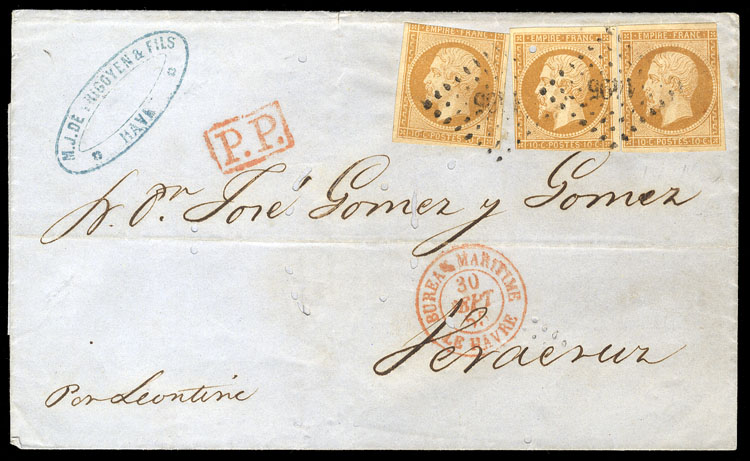 M. J. DE YRIGOYEN & FILS
HAVRE
P.P.
EMPIRE FRANC
10 C POSTES 10 C
EMPIRE FRANC
10 C POSTES 10 C
EMPIRE FRANC
10 C POSTES 10 C
1495
Sr. Dn. José Gomez y Gomez
BUREAU MARITIME
30
SEPT
LE HAVRE
Veracruz
Por Leontine